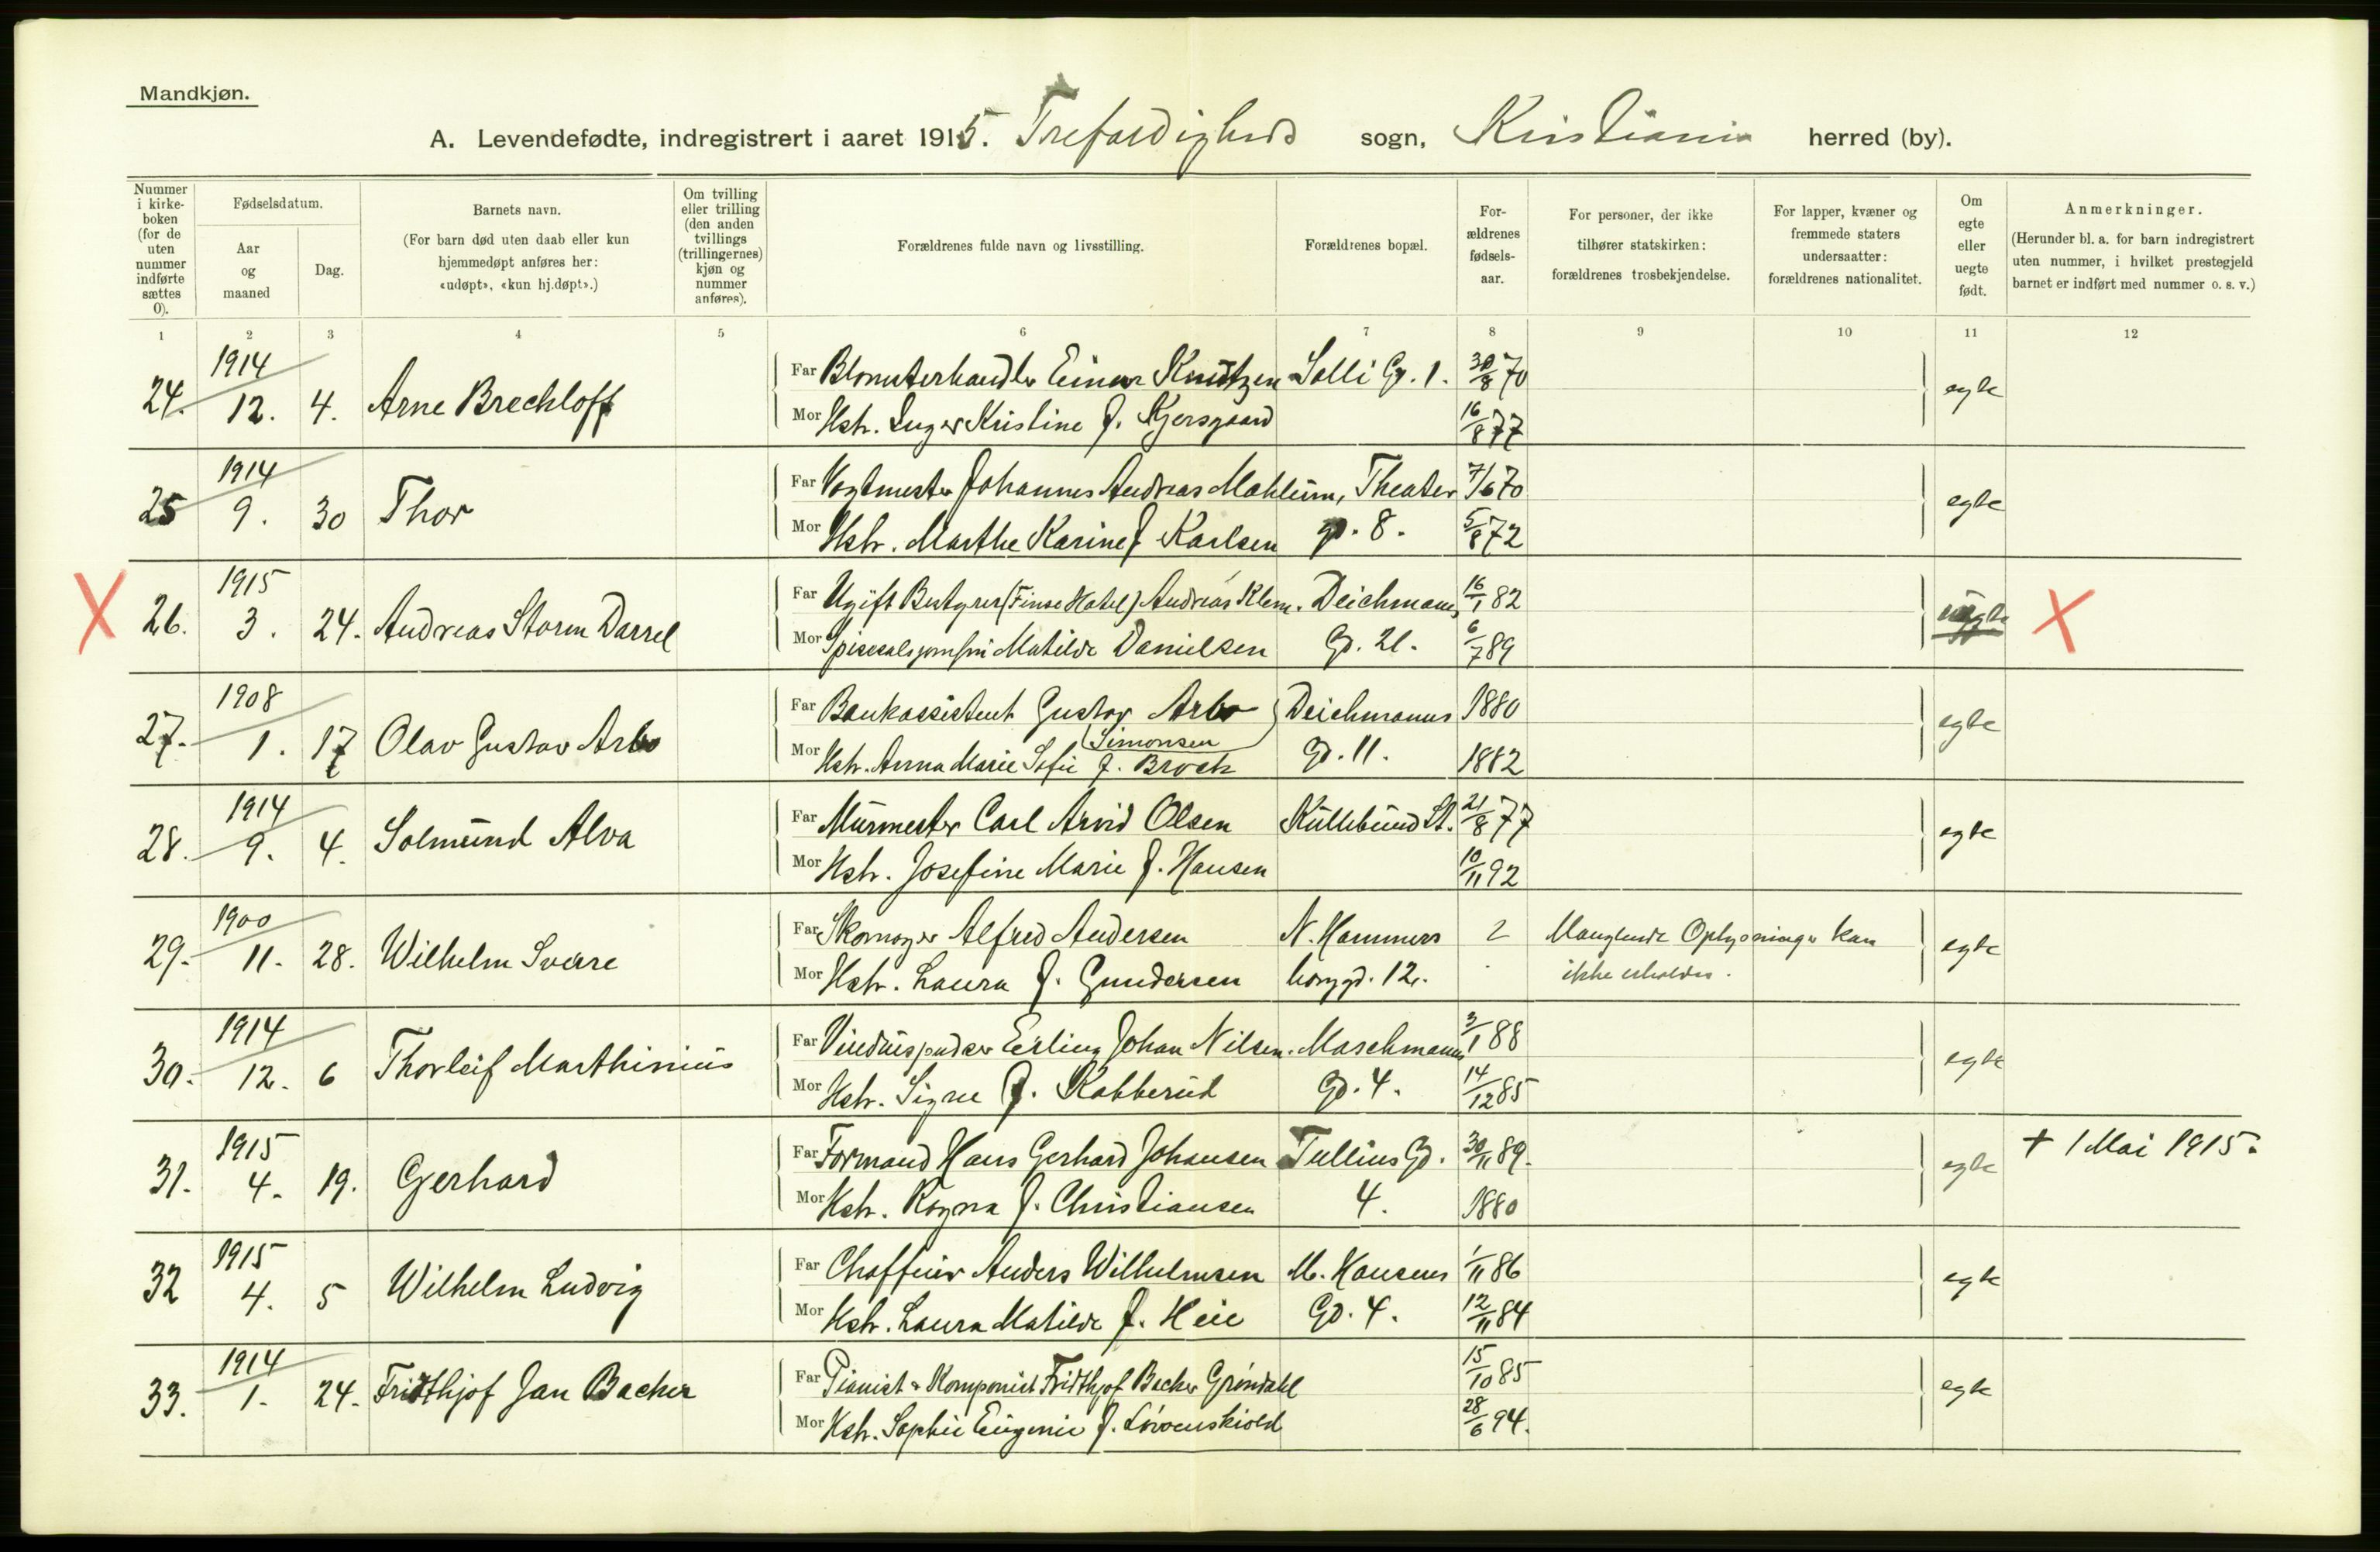 Mandkjøn.
A. Levendefødte, indregistrert i aaret 1915. Trefoldigheds sogn, Kristiania herred (by).
Nummer i kirke-boken (for de uten nummer indførte sættes 0).
Fødselsdatum.
Aar og maaned
Dag.
Barnets navn.
(For barn død uten daab eller kun hjemmedøpt anføres her: «udøpt», «kun hj.døpt».)
Om tvilling eller trilling (den anden tvillings (trillingernes) kjøn og nummer anføres).
Forældrenes fulde navn og livsstilling.
Forældrenes bopæl.
For-ældrenes fødsels-aar.
For personer, der ikke tilhører statskirken: forældrenes trosbekjendelse.
For lapper, kvæner og fremmede staters undersaatter: forældrenes nationalitet.
Om egte eller uegte født.
Anmerkninger.
(Herunder bl. a. for barn indregistrert uten nummer, i hvilket prestegjeld barnet er indført med nummer o. s. v.)
1 2 3 4 5 6 7 8 9 10 11 12
24. 1914 12. 4. Arne Brechloff
Far Blomsterhandler Einar Knutzen Solli Gd. 1. 30/8 70 egte
Mor Hstr. Inger Kristine f. Kjersgaard 16/8 77
25 1914 9. 30 Thor
Far Vogtmester Johannes Andreas Mahlum, Theater 7/6 70 egte
Mor Hstr. Marthe Karine f Karlsen gd. 8. 5/8 72
X 26. 1915 3. 24. Andreas Storm Darrel
Far Ugift Bestyrer (Finse Hotel) Andreas Klem. Deichmans 16/1 82 uegte X
Mor Spisesalsjomfru Matilde Danielsen Gd. 21. 6/7 89
27. 1908 1. 17 Olav Gustav Arbo
Far Bankassistent Gustav Arbo Deichmanns 1880 egte
Mor Hstr. Anna Marie Sofie f. Broch (Simonsen Gd. 11. 1882
28. 1914 9. 4. Solmund Alva
Far Murmester Carl Arvid Olsen Kullebund St. 21/8 77 egte
Mor Hstr. Josefine Marie f. Hansen 10/11 92
29. 1900 11. 28. Wilhelm Sverre
Far Skomager Alfred Andersen N. Hammers 2 Manglende Oplysninger kan egte
Mor Hstr. Laura f. Gundersen borggd. 12. ikke erholdes.
30. 1914 12. 6 Thorleif Marthinius
Far Vinduspudser Erling Johan Nilsen. Maschmanns 3/1 88 egte
Mor Hstr. Signe f. Kabberud Gd. 4. 14/12 85
31. 1915 4. 19. Gerhard
Far Formand Hans Gerhard Johansen Tullins Gd. 30/11 89. egte † 1 Mai 1915.
Mor Hstr. Ragna f. Christiansen 4. 1880
32 1915 4. 5 Wilhelm Ludvig
Far Chaffeur Anders Wilhelmsen M. Hansens 1/11 86 egte
Mor Hstr. Laura Matilde f. Heie Gd. 4. 12/11 84
33. 1914 1. 24. Fridthjof Jan Backer
Far Pianist & Komponist Fridthjof Backer Grøndahl 15/10 85 egte
Mor Hstr. Sophie Eugenie f. Løvenskiold 28/6 94.